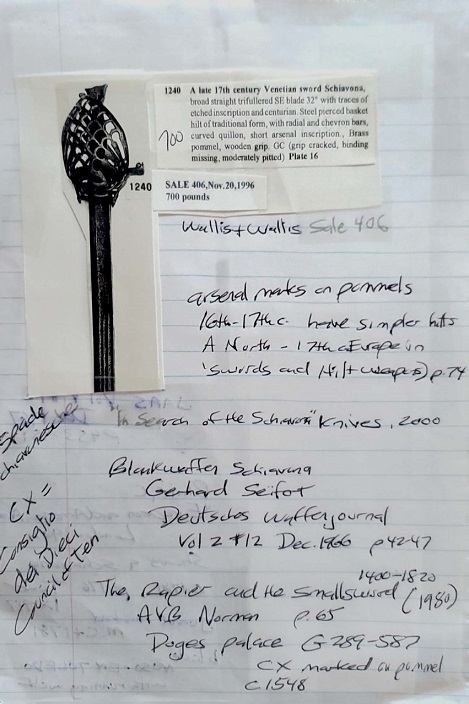 1240 A late 17th century Venetian sword Schiavona,
broad straight trifullered SE blade 32" with traces of
etched inscription and centurian. Steel pierced basket
hilt of traditional form, with radial and chevron bars,
curved quillon, short arsenal inscription., Brass
pommel, wooden grip. GC (grip cracked, binding
missing, moderately pitted) Plate 16
700
1240
SALE 406,Nov.20,1996
700 pounds
Wallis + Wallis Sale 406
arsenal marks on pommels
16th-17thc. have simpler hilts
A North - 17thc European in
'swords and Hilt weapons' p.74
"In Search of the Schiavona" Knives, 2000
Spade
schiavonesche
CX =
Consiglio
dei Dieci
Council of Ten
Blankwaffen Schiavona
Gerhard Seifert
Deutsches Waffenjournal
Vol 2 #12 Dec. 1966 p42-47
1400-1820
The Rapier and the Smallsword (1980)
AVB Norman p.65
Doges palace G289-587
CX marked on pommel
c1548